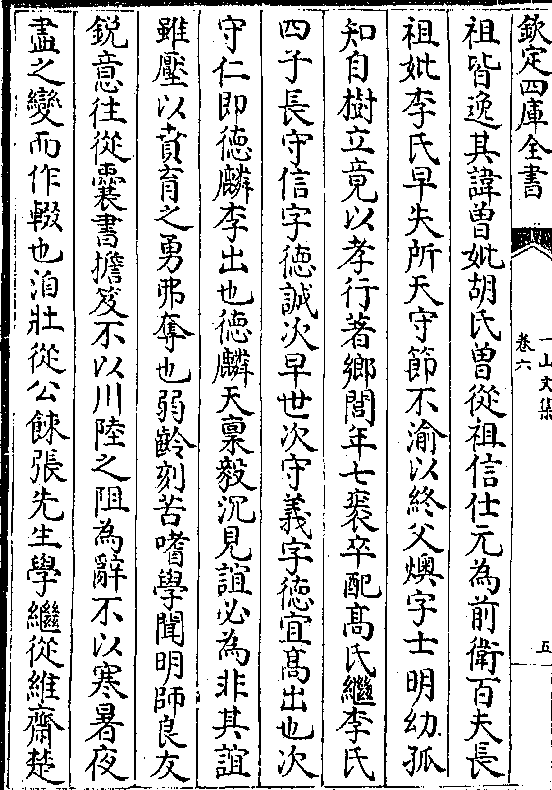 欽定四庫全書
一山文集
卷六
五
祖皆逸其諱曽妣胡氏曽從祖信仕元為前衛百夫長
祖妣李氏早失所天守節不渝以終父燠字士明幼孤
知自樹立竟以孝行著鄉閭年七袠卒配髙氏繼李氏
四子長守信字徳誠次早世次守義字徳宜髙出也次
守仁即徳麟李出也徳麟天禀毅沉見誼必為非其誼
雖壓以賁育之勇弗奪也弱齡刻苦嗜學聞明師良友
鋭意往從囊書擔笈不以川陸之阻為辭不以寒暑夜
盡之變而作輟也洎壯從公餗張先生學繼從維齋楚